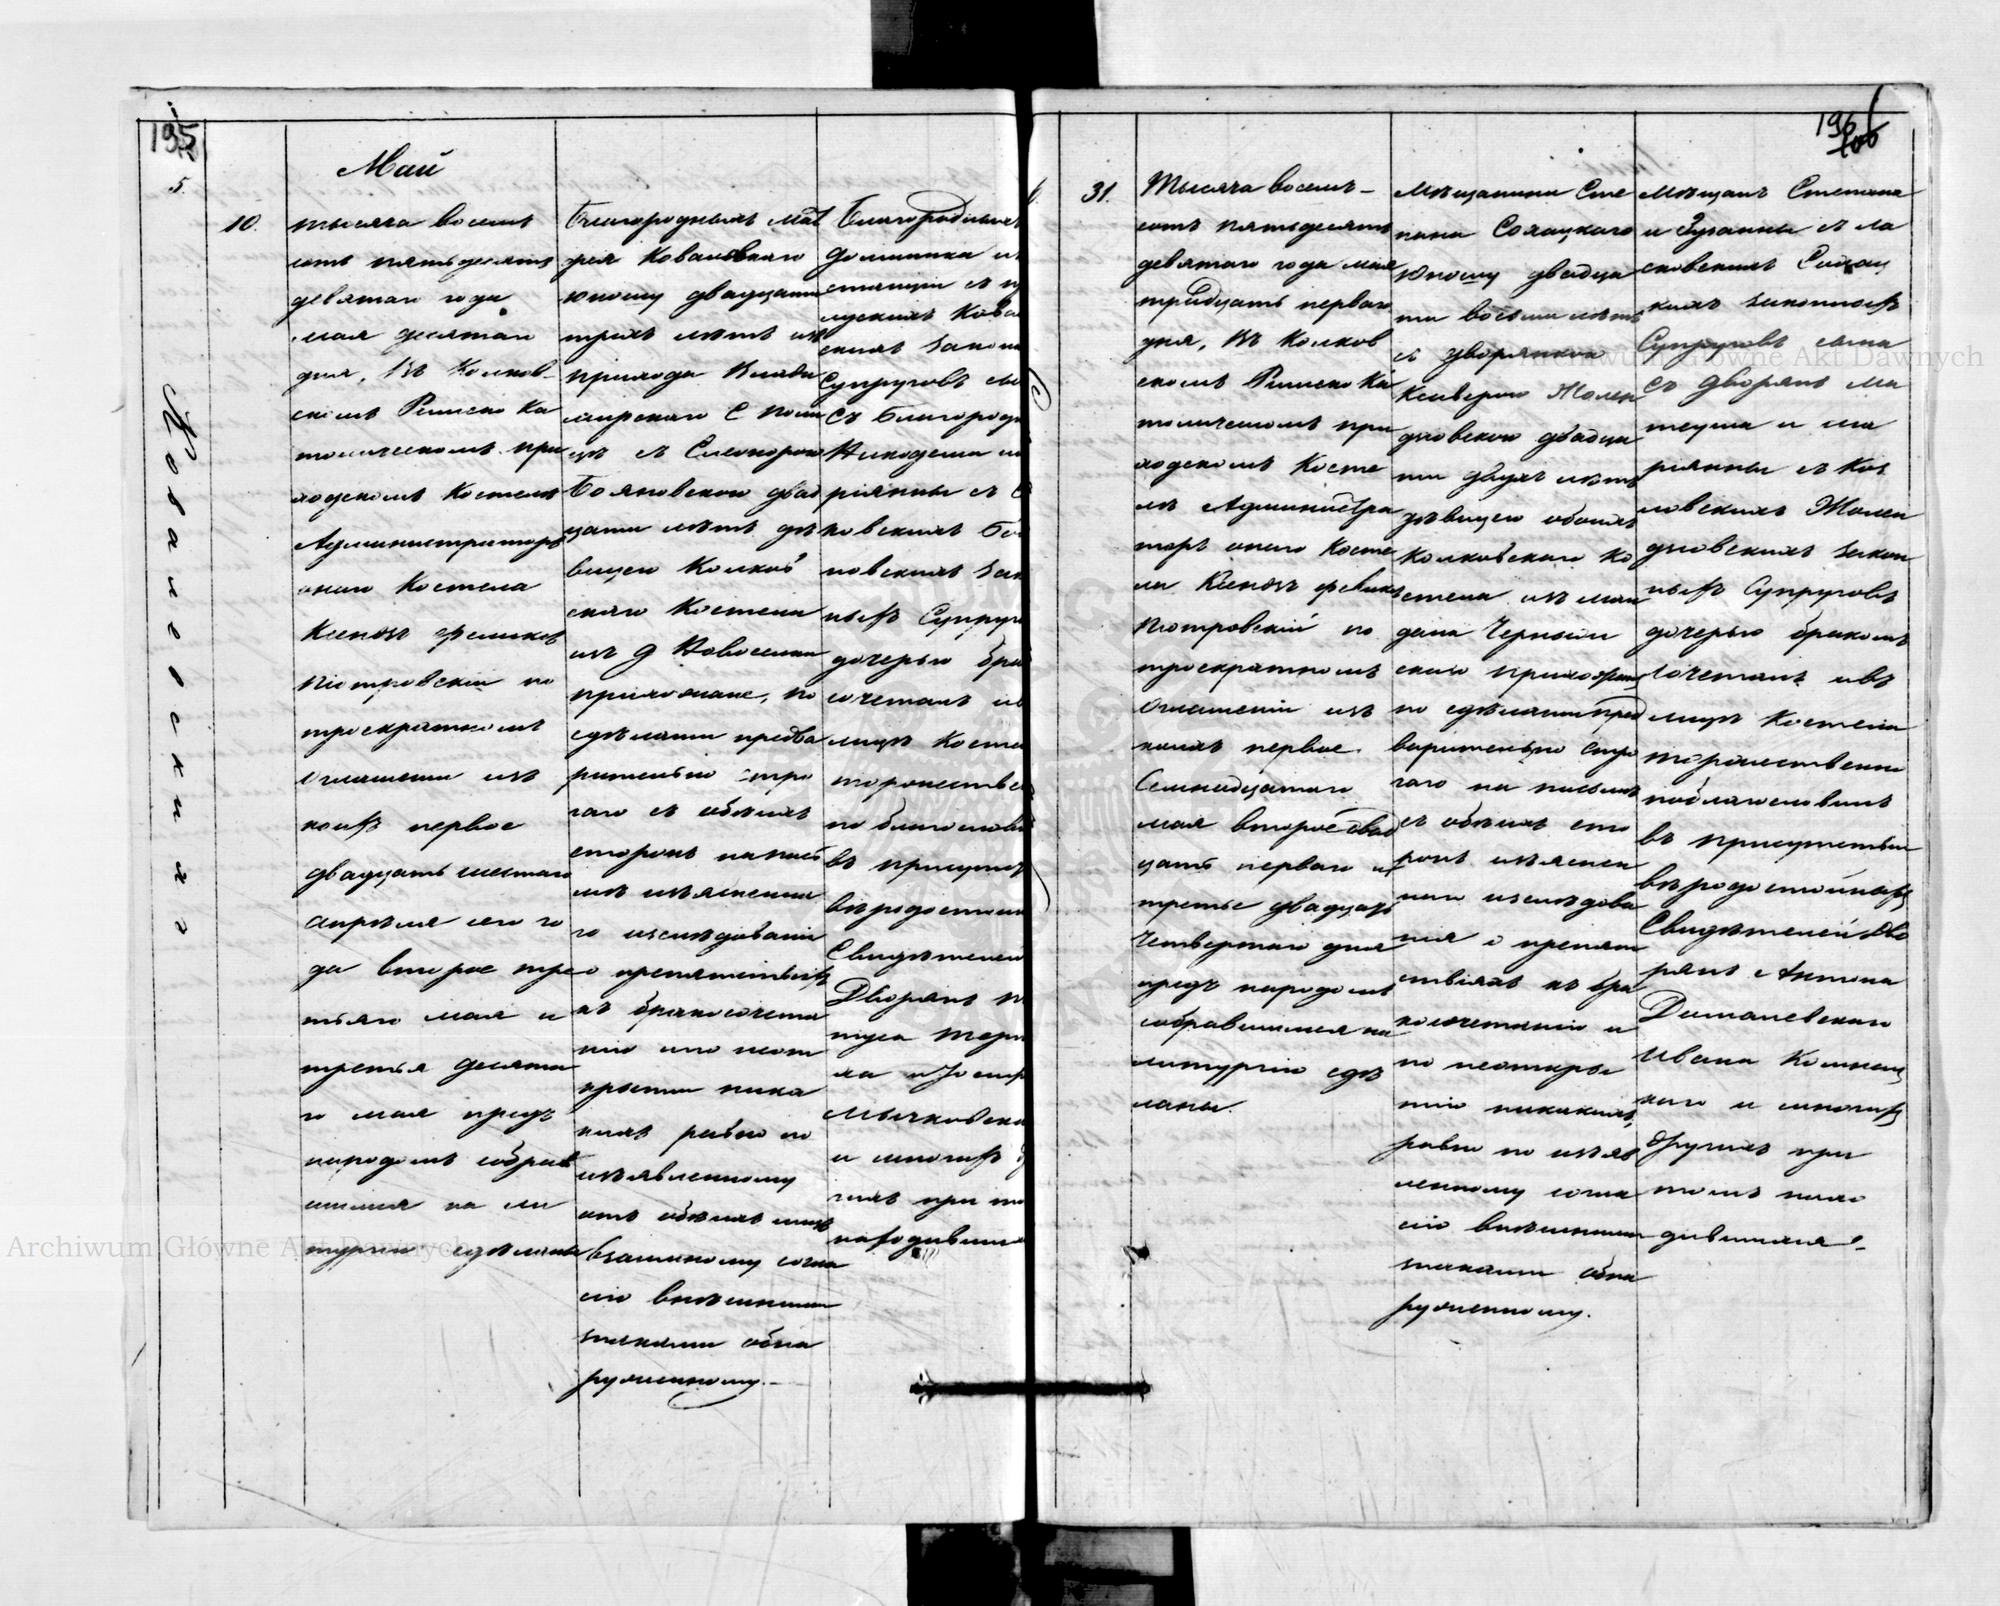 195
5.
Май
Ковалевския
10.
тысяча восемь
сотъ пятьдесятъ
девятаго года
мая десятаго
дня, въ Колков
скомъ Римско Ка
толическомъ при
ходскомъ Костелѣ
Администраторъ
онаго Костела
Ксендзъ Феликсъ
Піотровскій по
троекратномъ
оглашеніи изъ
коихъ первое
двадцать шестаго
апрѣля сего го
да второе тре
тьяго мая и
третья десята
го мая предъ
народомъ собрав
шимся на ли
тургію сдѣланы
Благородныхъ Мат
фея Ковалевскаго
юношу двадцати
трехъ лѣтъ изъ
прихода Влади
мирскаго с
съ
Бояновскою двад
цати лѣтъ дѣ
вицею Колков
скаго Костела
изъ д Новоселки
прихожане, по
сдѣланіи предва
рительно стро
гаго съ обѣихъ
сторонъ на пись
мѣ изъясненна
го изслѣдованія
о препятствіяхъ
къ бракосочета
нію и по неот
крытіи ника
кихъ равно по
изъявленному
отъ обѣихъ лицъ
взаимному согла
сію внѣшними
знаками обна
руженному.
Благородныхъ
Доминика и
скихъ закон
Супруговъ сы
съ Благород
Никодима и
ріянны съ
ковскихъ Бо
новскихъ зак
ныхъ Супруг
дочерью бра
сочеталъ и
лицѣ Косте
торжестве
но благослови
въ присутст
вѣродостойн
Свидѣтелей
Дворянъ
и многихъ
гихъ при то
находивши
196
106
31.
Тысяча восемь
сотъ пятьдесятъ
девятаго года мая
тридцать перваго
дня, въ Колков
скомъ Римско Ка
толическомъ при
ходскомъ Косте
лѣ Администра
торъ онаго Косте
ла Ксендзъ Феликсъ
Піотровскій по
троекратномъ
оглашеніи изъ
коихъ первое
Семнадцатаго
мая второе двад
цать перваго и
третье двадцать
четвертаго дня
предъ народомъ
собравшимся на
литургію сдѣ
ланы.
Мѣщанина Сте
пана Солацкаго
юношу двадца
ти восьми лѣтъ
съ дворянкою
Ксаверою Жолен
дзіовскою двадца
ти двухъ лѣтъ
дѣвицею обоихъ
Колковскаго Ко
стела изъ
скаго прихожанъ
по сдѣланіи пред
варительно стро
гаго на письмѣ
съ обѣихъ сто
ронъ изъяснен
наго изслѣдова
нія о препят
ствіяхъ къ бра
косочетанію и
по неоткры
тію никакихъ,
равно по изъяв
ленному согла
сію внѣшними
знаками обна
руженному.
Мѣщанъ Степана
и Зузанны съ Ла
сковскихъ Солац
кихъ законныхъ
Супруговъ сына
съ Дворянъ Ма
теуша и Ма
ріянны съ Коз
ловскихъ Жолен
дзіовскихъ закон
ныхъ Супруговъ
дочерью бракомъ
сочеталъ и въ
лицѣ Костела
торжественно
поблагословилъ
въ присутствіи
вѣродостойныхъ
Свидѣтелей Дво
рянъ Антона
Ивана
каго и многихъ
другихъ при
томъ нахо
дившихся.
Archiwum Główne Akt Dawnych
Archiwum Główne Akt Dawnych